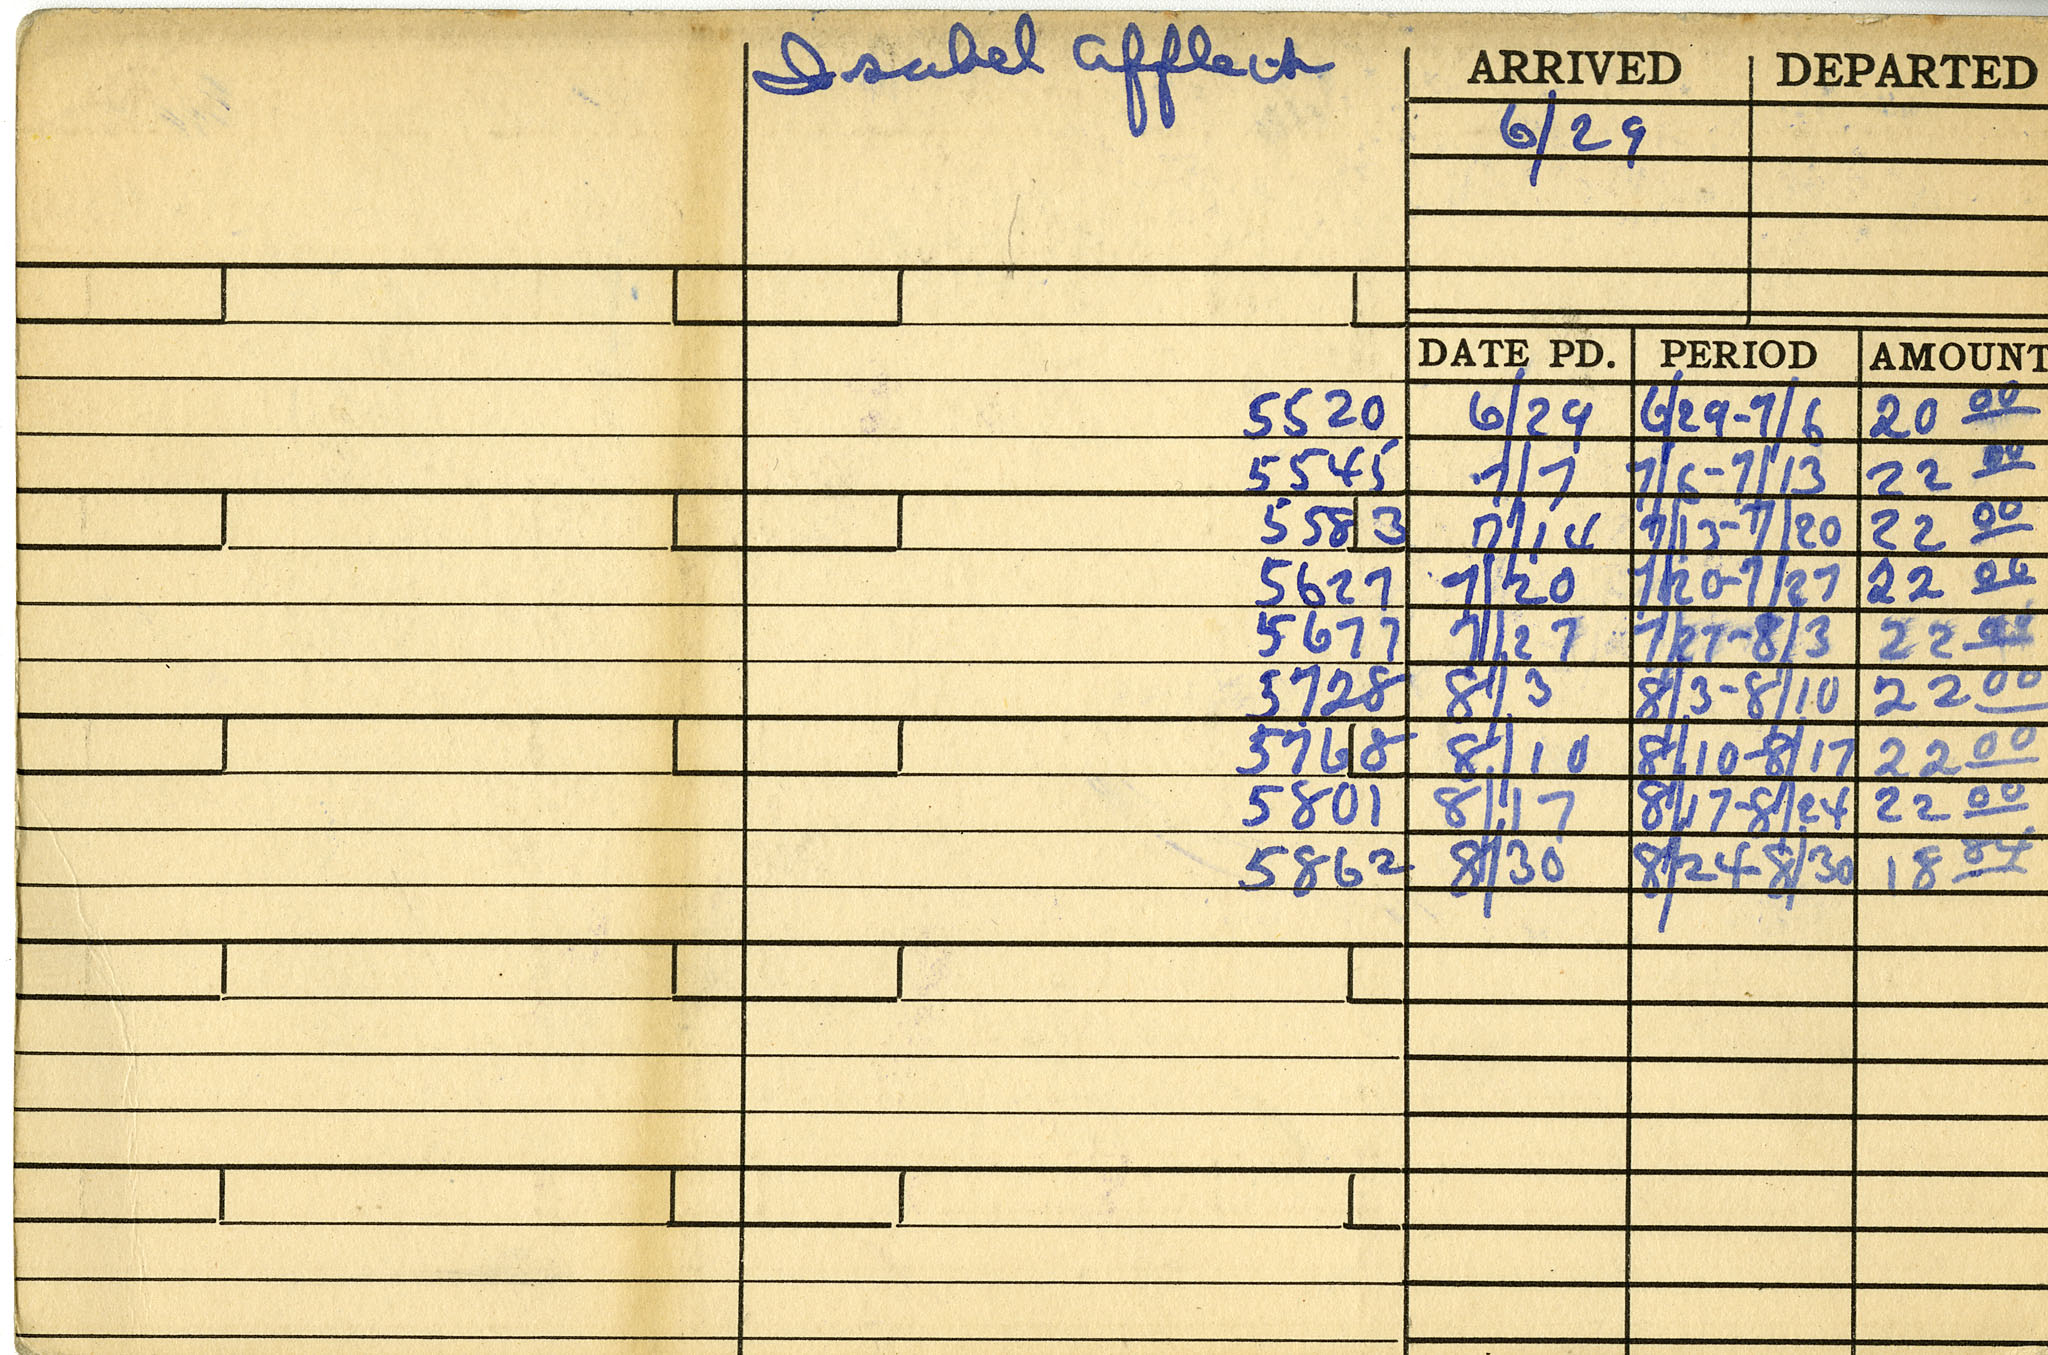 Isabel Affleck
ARRIVED DEPARTED
6/29
DATE PD. PERIOD AMOUNT
5520 6/29 6/29-7/6 20 00
5545 7/7 7/6-7/13 22 00
5583 7/14 7/13-7/20 22 00
5627 7/20 7/20-7/27 22 00
5677 7/27 7/27-8/3 22 00
5728 8/3 8/3-8/10 22 00
5768 8/10 8/10-8/17 22 00
5801 8/17 8/17-8/24 22 00
5862 8/30 8/24-8/30 18 84